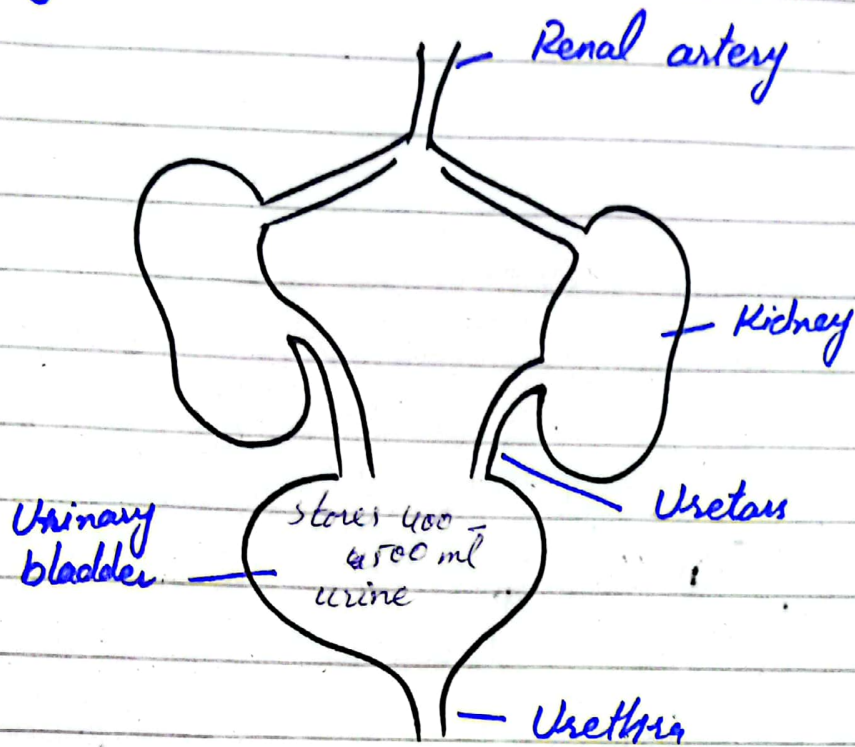 Renal artery
Kidney
Uretars
Urinary
bladder
stores 400 -
500 ml
urine
Urethra